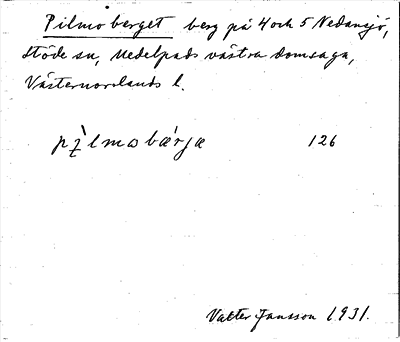 Pilmoberget berg på 4 och 5 Nedansjö,
Stöde sn, Medelpads västra domsaga,
Västernorrlands l.
pi̬̊̀lmωbǽrjæ 126
Valter Jansson 1931.